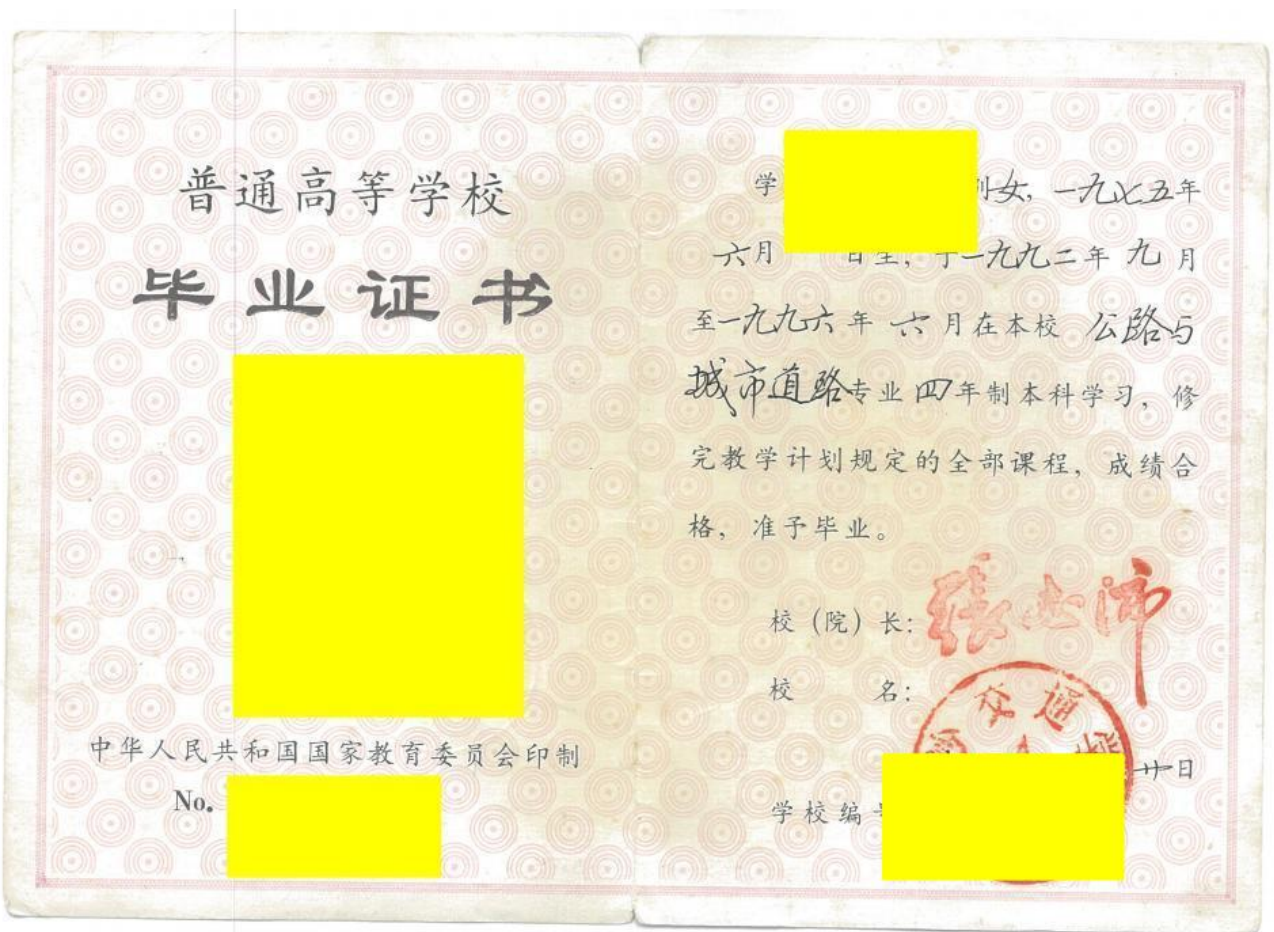 普通高等学校
毕业证书
中华人民共和国国家教育委员会印制
No.
学 女, 一九七五年
六月 日生, 于一九九二年九月
至一九九六年六月在本校 公路与
城市道路专业四年制本科学习, 修
完教学计划规定的全部课程, 成绩合
格, 准予毕业。
校 (院) 长:
校 名:
交通
廿日
学校编